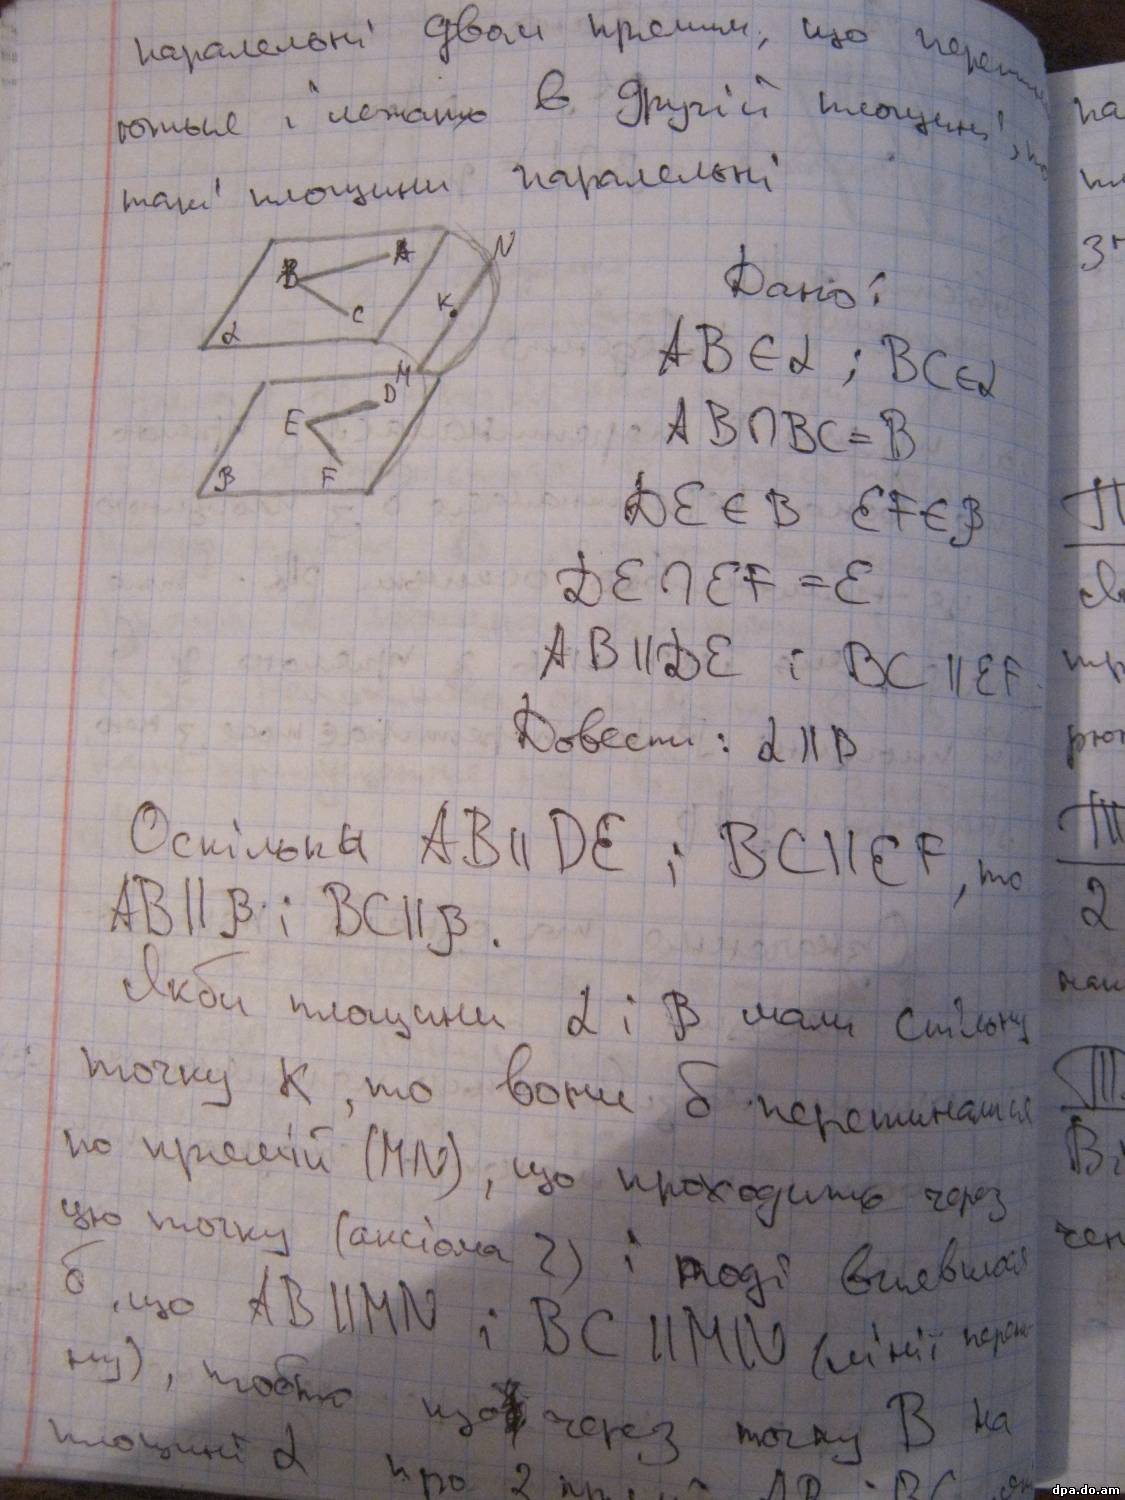 паралельні двом прямим, що перетина
ються і лежать в другій площині, то
такі площини паралельні
B A C K N M
α
E D F
β
Дано:
AB ∈ α ; BC ∈ α
AB ∩ BC = B
DE ∈ β EF ∈ β
DE ∩ EF = E
AB || DE і BC || EF
Довести: α || β
Оскільки AB || DE і BC || EF, то
AB || β і BC || β.
Якби площини α і β мали спільну
точку K, то вони б перетиналися
по прямій (MN), що проходить через
цю точку (аксіома 2) і тоді виявилося
б, що AB || MN і BC || MN (лінії перети-
ну), тобто що через точку B на
площині α про 2 прямі AB і BC
па
пл
зн
П
Як
пр
рют
Т
2
Т
Ві
чен
dpa.do.am